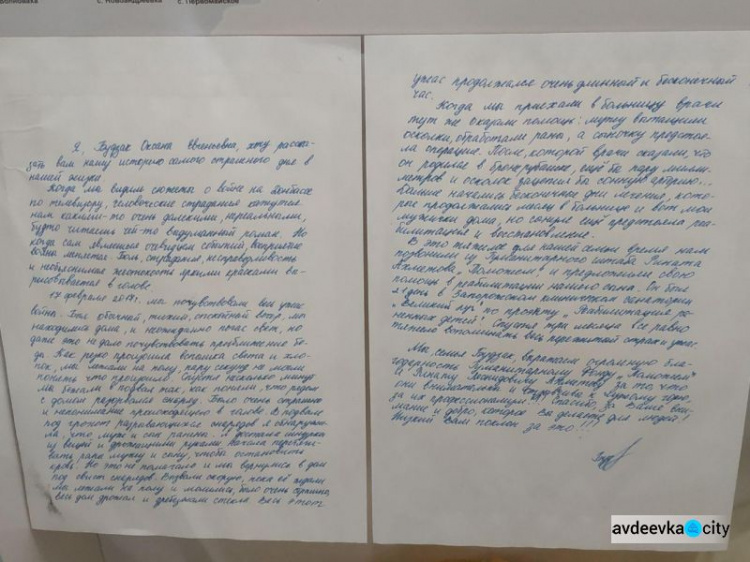 с. Новоандреевка
с. Первомайское
Я, Будзак Оксана Евгеньевна, хочу расска-
зать вам нашу историю самого страшного дня в
нашей жизни.
Когда мы видим сюжеты о войне на Донбассе
по телевизору, человеческие страдания кажутся
нам какими-то очень далекими, нереальными,
будто читаешь чей-то выдуманный роман. Но
когда сам являешься очевидцем событий, восприятие
войны меняется. Боль, страдания, несправедливость
и необъяснимая жестокость яркими красками вы-
рисовывается в голове.
17 февраля 2017г. мы почувствовали весь ужас
войны. Был обычный, тихий, спокойный вечер, мы
находились дома, и неожиданно погас свет, но
даже это не дало почувствовать приближение бе-
ды. Как резко произошла вспышка света и хло-
пок, мы лежали на полу, пару секунд не могли
понять что произошло. Спустя несколько минут
мы бежали в подвал так как поняли, что рядом
с домом разорвался снаряд. Было очень страшно
и непонимание происходящего в голове. В подвале
под грохот разрывающихся снарядов я обнаружи-
ла, что муж и сын ранены. Я достала шнурки
из вещей и дрожащими руками начала перевязы-
вать раны мужу и сыну, чтобы остановить
кровь. Но это не помогало и мы вернулись в дом
под свист снарядов. Вызвали скорую, пока её ждали
мы лежали на полу и молились, было очень страшно,
весь дом дрожал и дребезжали стекла. Весь этот
ужас продолжался очень длинный и бесконечный
час.
Когда мы приехали в больницу врачи
тут же оказали помощь: мужу вытащили
осколки, обработали раны, а сыночку предстоя-
ла операция. После, которой врачи сказали, что
он родился в бронерубашке, ещё бы пару миллии-
метров и осколок зацепил бы сонную артерию...
Дальше начались бесконечные дни лечения, кото-
рые продолжались месяц в больнице и вот, мои
мужички дома, но сыночке ещё предстояла реа-
билитация и восстановление.
В это тяжелое для нашей семьи время нам
позвонили из Гуманитарного штаба Рината
Ахметова "Поможем" и предложили свою
помощь в реабилитации нашего сына. Он был
21 день в Запорожском клиническом санатории
"Великий Луг" по проекту "Реабилитация ра-
ненных детей". Спустя три месяца все равно
тяжело вспоминать весь пережитый страх и ужас
Мы, семья Будзак, выражаем огромную бла-
годарность Гуманитарному Фонду "Поможем"
и Ринату Леонидовичу Ахметову за то, что
они внимательны и чутки к чужому горю,
за их профессионализм! Спасибо, за Ваше вни-
мание и добро, которое Вы делаете для людей!
Низкий Вам поклон за это!!!
avdeevka city